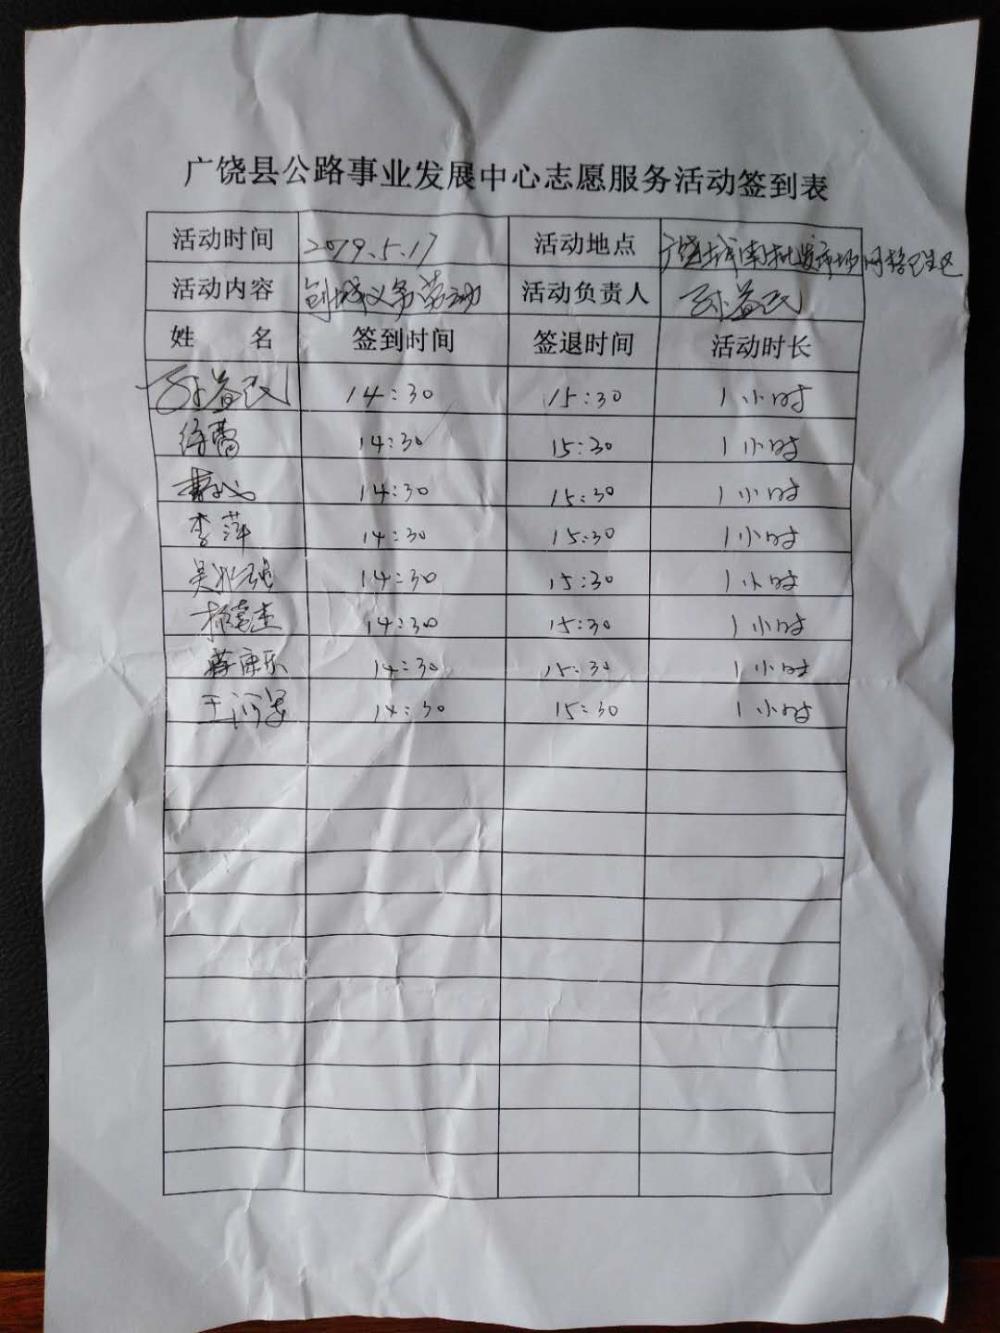 广饶县公路事业发展中心志愿服务活动签到表
活动时间 2019.5.17 活动地点 广饶城南批发市场网格卫生区
活动内容 创城义务劳动 活动负责人 孙益民
姓 名 签到时间 签退时间 活动时长
孙益民 14:30 15:30 1小时
徐蕾 14:30 15:30 1小时
14:30 15:30 1小时
李萍 14:30 15:30 1小时
吴 14:30 15:30 1小时
14:30 15:30 1小时
蒋康乐 14:30 15:30 1小时
王 14:30 15:30 1小时